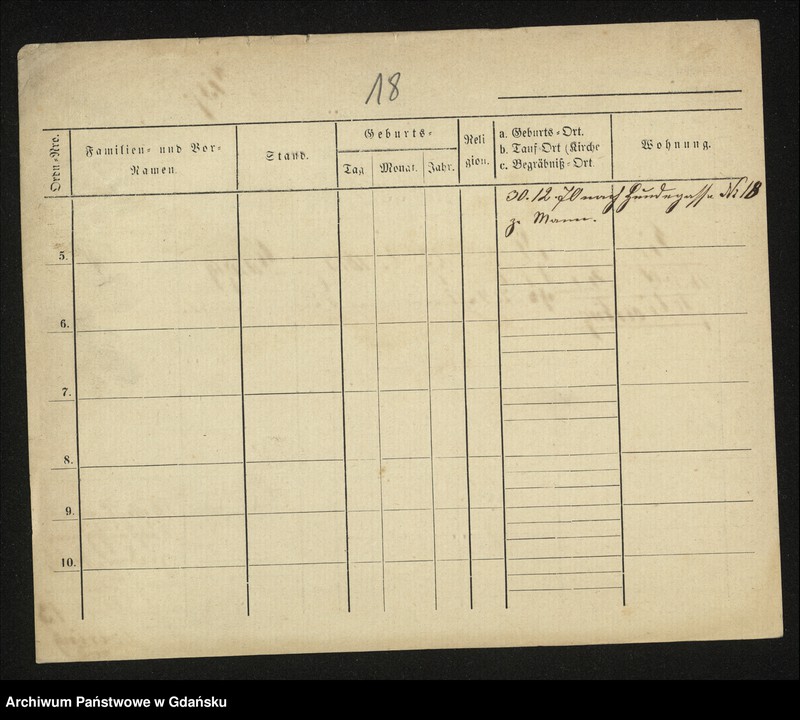 18
Ordn=Nro.
Familien= und Vor=
Namen.
Stand.
Geburts=
Tag
Monat.
Jahr.
Reli
gion.
a. Geburts=Ort.
b. Tauf=Ort (Kirche
c. Begräbniß=Ort.
Wohnung.
30.12.70 nach Hundegasse No 18
z. Mann.
5.
6.
7.
8.
9.
10.
Archiwum Państwowe w Gdańsku